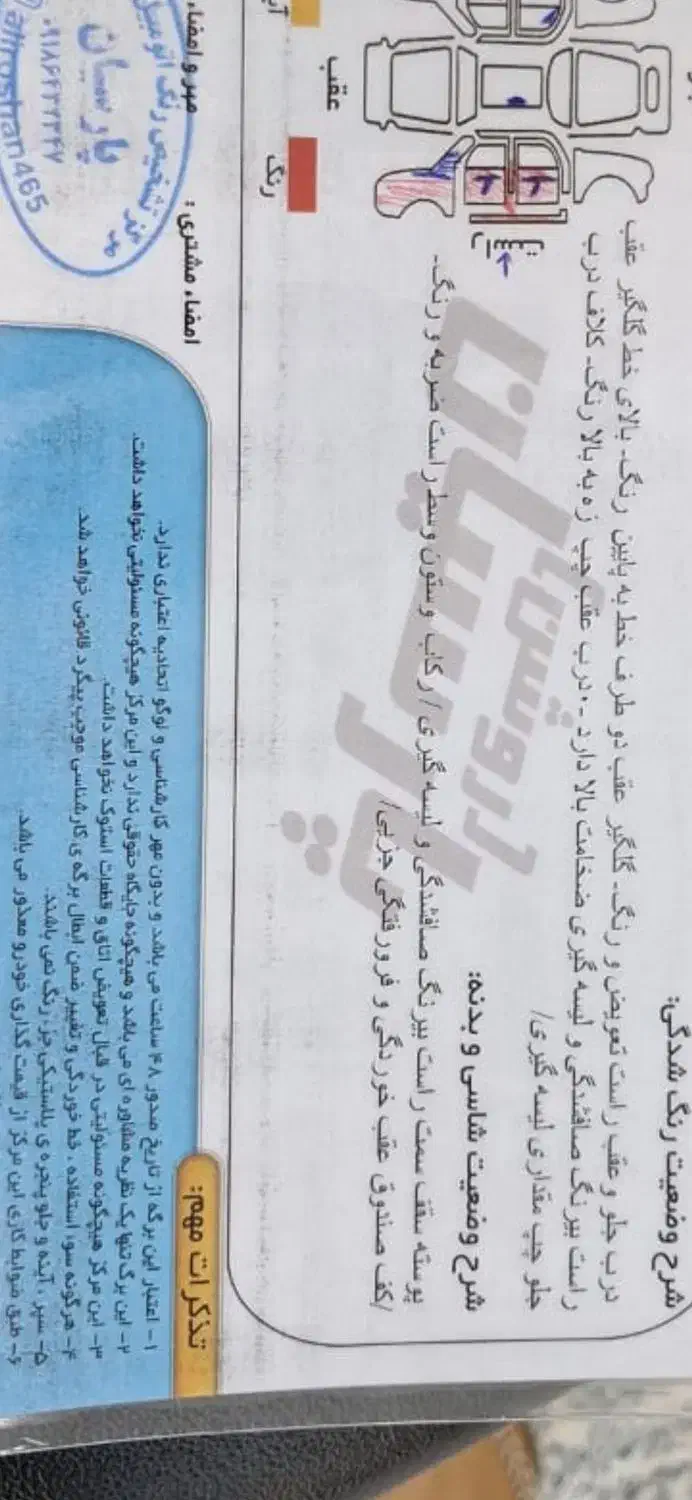 شرح وضعیت رنگ شدگی:
درب جلو و عقب راست تعویض و رنگ- گلگیر عقب دو طرف خط به پایین رنگ- بالای خط گلگیر عقب
راست بیرنگ صافشدگی و لیسه گیری ضخامت بالا دارد- درب عقب چپ زه به بالا رنگ- کلاف درب
جلو چپ مقداری لیسه گیری/
شرح وضعیت شاسی و بدنه:
پوسته سقف سمت راست بیرنگ صافشدگی و لیسه گیری/رکاب وستون وسط راست ضربه و رنگ-
/کف صندوق عقب خوردگی و فرورفتگی جزیی/
عقب
رنگ
مهر و امضاء
امضاء مشتری:
تشخیص رنگ اتومبیل
پارسیان
پارسیان
تذکرات مهم:
۱- اعتبار این برگه از تاریخ صدور ۴۸ ساعت می باشد و بدون مهر کارشناسی و لوگو اتحادیه اعتباری ندارد.
۲- این برگ تنها یک نظریه مشاوره ای می باشد و هیچگونه جایگاه حقوقی ندارد و این مرکز هیچگونه مسئولیتی نخواهد داشت.
۳- این مرکز هیچگونه مسئولیتی در قبال تعویض اتاق و قطعات استوک نخواهد داشت.
۴- هرگونه سوء استفاده، خط خوردگی و تغییر ضمن ابطال برگه ی کارشناسی موجب پیگرد قانونی خواهد شد.
۵- سپر، آینه و جلو پنجره ی پلاستیکی جزء رنگ نمی باشند.
۶- طبق ضوابط کاری این مرکز از قیمت گذاری خودرو معذور می باشد.